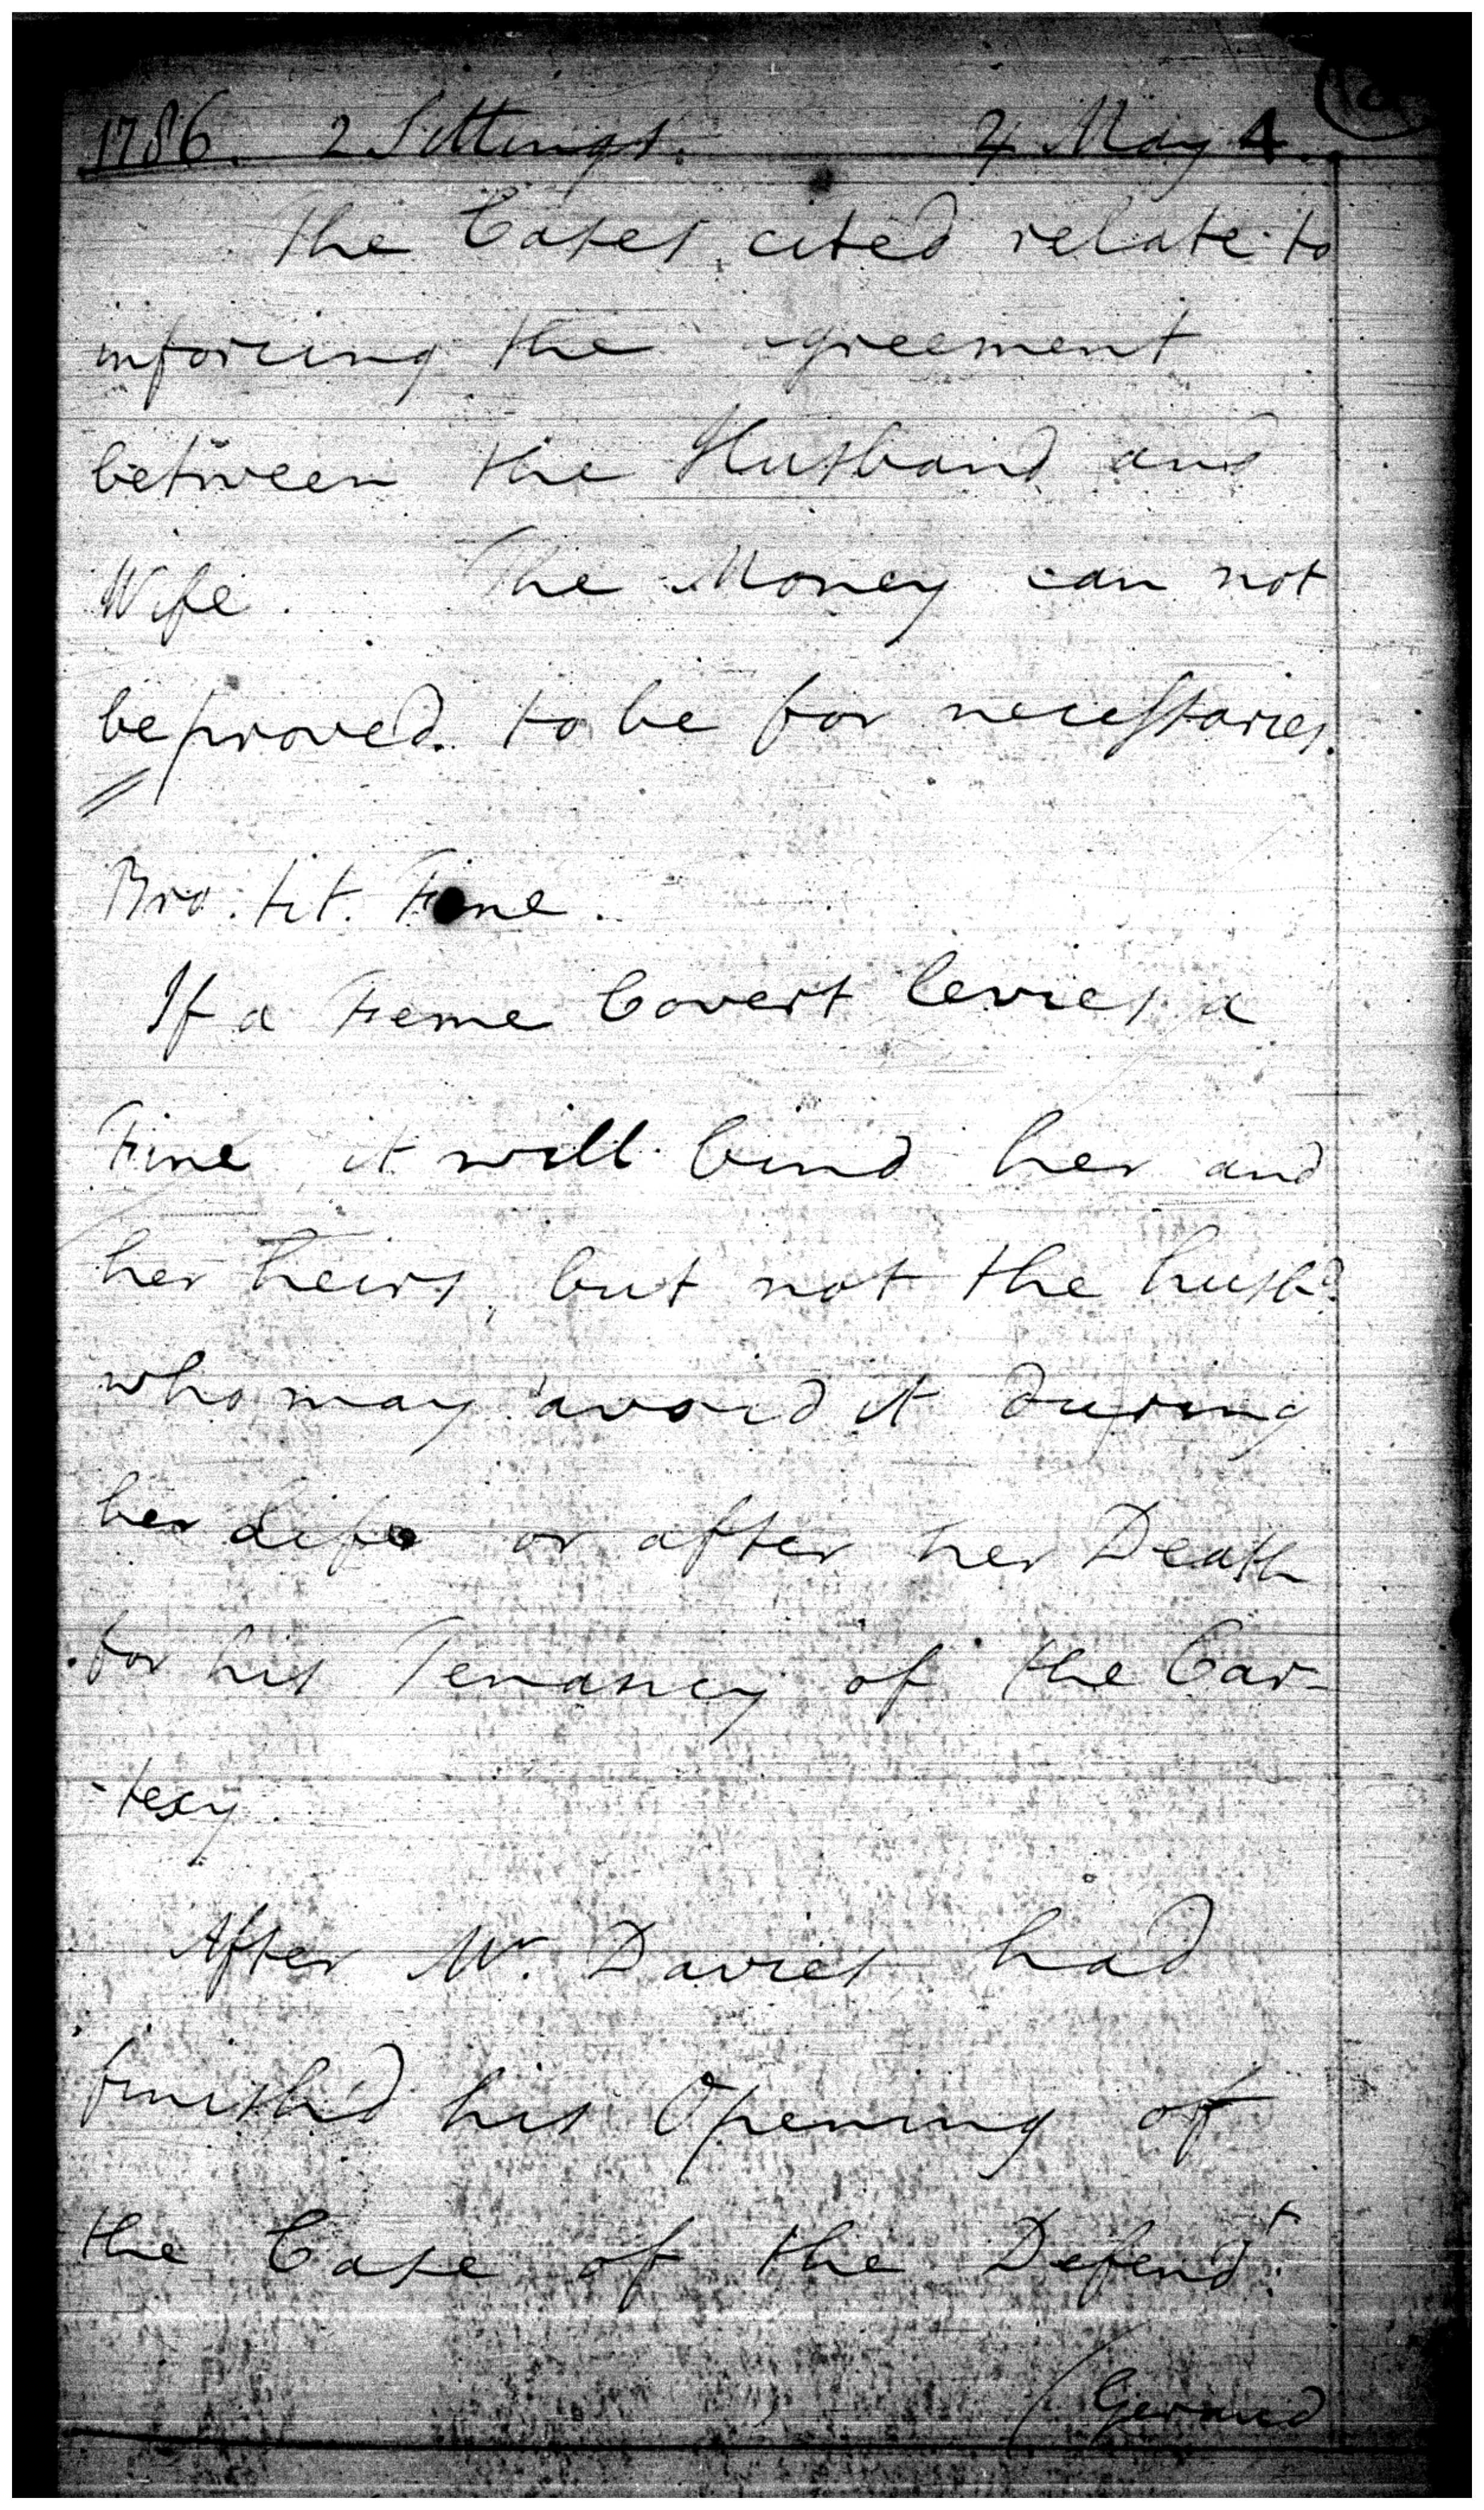 1786. 2 Sittings. 4 May 4.
The Cases cited relate to
inforcing the agreement
between the Husband and
Wife. The Money can not
be proved to be for necessaries.
Bro. tit. Fine.
If a Feme Covert levies a
Fine it will bind her and
her heirs, but not the husbd.
who may avoid it during
her Life or after her Death
for his Tenancy of the Cur-
-tesy.
After Mr. Davies had
finish'd his Opening of
the Case of the Defendt.